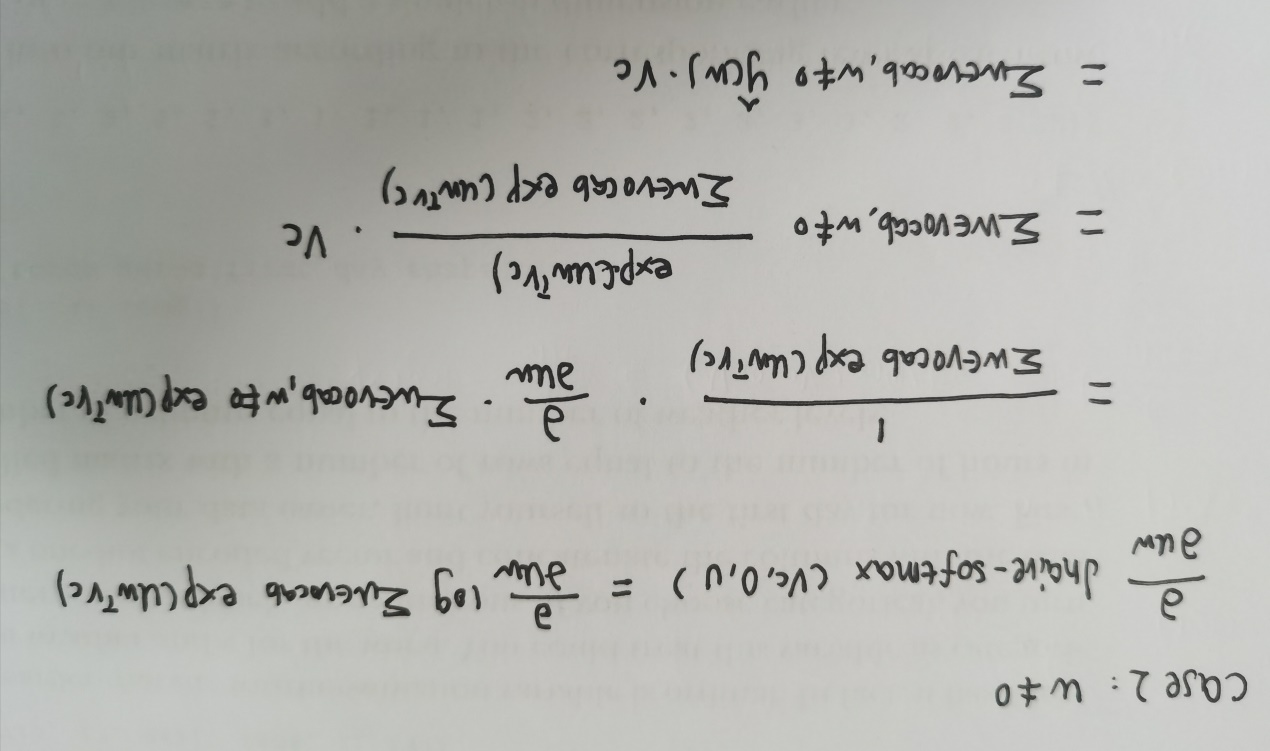 case 2: w≠o
∂/∂uw Jnaive-softmax (vc,o,U) = ∂/∂uw log Σw∈vocab exp(uwᵀvc)
= 1/Σw∈vocab exp(uwᵀvc) · ∂/∂uw · Σw∈vocab, w≠o exp(uwᵀvc)
= Σw∈vocab, w≠o exp(uwᵀvc)/Σw∈vocab exp(uwᵀvc) · vc
= Σw∈vocab, w≠o ŷ(w) · vc